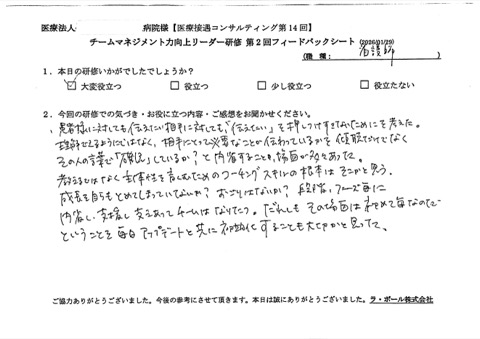 医療法人　　　　　病院様【医療接遇コンサルティング第14回】
チームマネジメント力向上リーダー研修 第2回フィードバックシート (2026/01/29)
(職種: 看護師)
1. 本日の研修いかがでしたでしょうか?
☑大変役立つ □役立つ □少し役立つ □役立たない
2. 今回の研修での気づき・お役に立つ内容・ご感想をお聞かせください。
患者様に対しても伝えたい相手に対しても「伝えたい」を押しつけすぎないためにを考えた。
理解させるようにではなく、相手にとって必要なことが伝わっているかを傾聴だけでなく
その人の言葉で「確認」しているか?と内省すること、場面が多々あった。
教えるではなく主体性を育むためのコーチングスキルの根本はそこかと思う。
成長を自らもとめてしまっていないか? おごりはないか? 段階、フェーズ毎に
内省し、支援し支えあってチームはなりたつ。だれしもその場面は初めて毎なので
ということを毎日アップデートと共に初期化することも大切かと思って。
ご協力ありがとうございました。今後の参考にさせて頂きます。本日は誠にありがとうございました。ラ・ポール株式会社